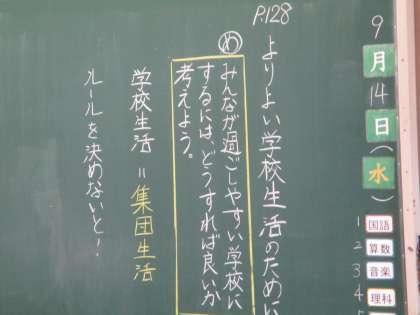 9
月
14
日
(水)
1 国語
2 算数
3 音楽
4 理科
5
P.128
よりよい学校生活のために
め
みんなが過ごしやすい学校に
するには、どうすれば良いか
考えよう。
学校生活=集団生活
ルールを決めないと!